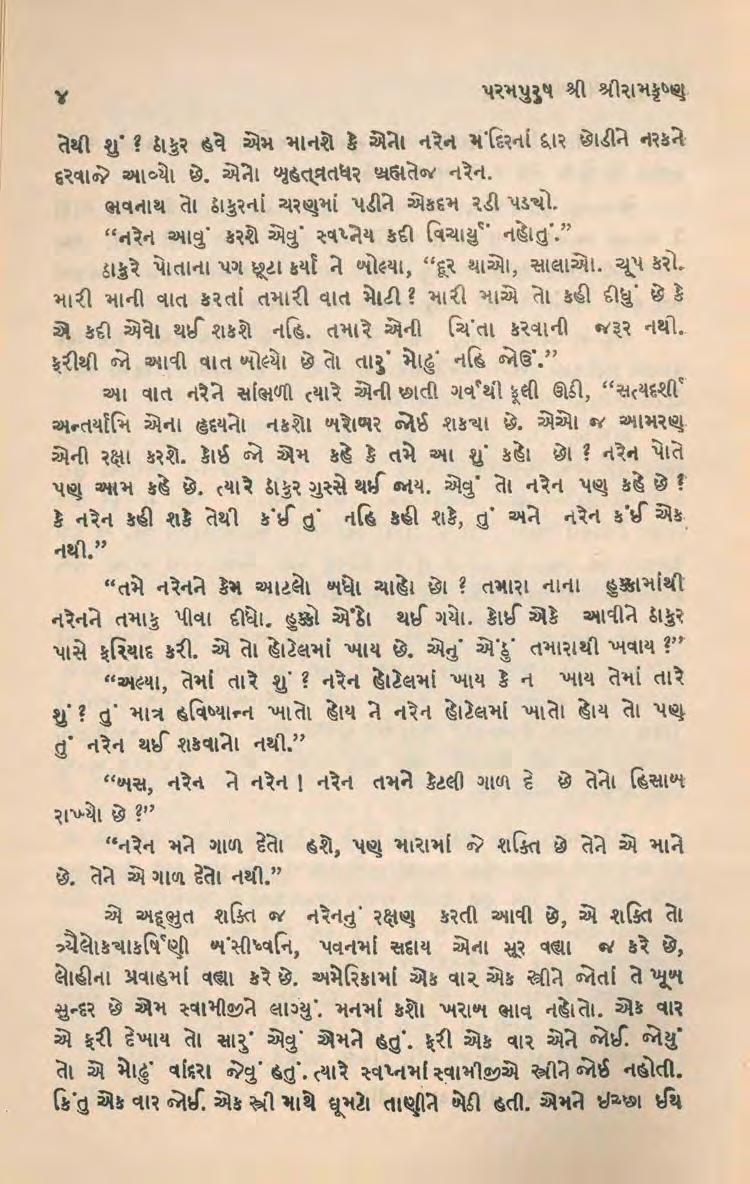 ૪ પરમપુરુષ શ્રી શ્રીરામકૃષ્ણ
તેથી શું ? ઠાકુર હવે એમ માનશે કે એનો નરેન મંદિરનાં દ્વાર છોડીને નરકને
દરવાજે આવ્યો છે. એનો બૃહત્‌વ્રતધર બ્રહ્મતેજ નરેન.
ભવનાથ તો ઠાકુરનાં ચરણમાં પડીને એકદમ રડી પડ્યો.
“નરેન આવું કરશે એવું સ્વપ્નેય કદી વિચાર્યું નહોતું.”
ઠાકુરે પોતાના પગ છૂટા કર્યા ને બોલ્યા, “દૂર થાઓ, સાલાઓ. ચૂપ કરો.
મારી માની વાત કરતાં તમારી વાત મોટી ? મારી માએ તો કહી દીધું છે કે
એ કદી એવો થઈ શકશે નહિ. તમારે એની ચિંતા કરવાની જરૂર નથી.
ફરીથી જો આવી વાત બોલ્યો છે તો તારું મોઢું નહિ જોઉં.”
આ વાત નરેને સાંભળી ત્યારે એની છાતી ગર્વથી ફૂલી ઊઠી, “સત્યદર્શી
અન્તર્યામિ એના હૃદયનો નકશો બરોબર જોઈ શક્યા છે. એઓ જ આમરણ
એની રક્ષા કરશે. કોઈ જો એમ કહે કે તમે આ શું કહો છો ? નરેન પોતે
પણ આમ કહે છે. ત્યારે ઠાકુર ગુસ્સે થઈ જાય. એવું તો નરેન પણ કહે છે ?
કે નરેન કહી શકે તેથી કંઈ તું નહિ કહી શકે, તું અને નરેન કંઈ એક
નથી.”
“તમે નરેનને કેમ આટલો બધો ચાહો છો ? તમારા નાના હુક્કામાંથી
નરેનને તમાકુ પીવા દીધો. હુક્કો એંઠો થઈ ગયો. કોઈ એકે આવીને ઠાકુર
પાસે ફરિયાદ કરી. એ તો હોટેલમાં ખાય છે. એનું એંઠું તમારાથી ખવાય ?”
“અલ્યા, તેમાં તારે શું ? નરેન હોટેલમાં ખાય કે ન ખાય તેમાં તારે
શું ? તું માત્ર હવિષ્યાન્ન ખાતો હોય ને નરેન હોટેલમાં ખાતો હોય તો પણ
તું નરેન થઈ શકવાનો નથી.”
“બસ, નરેન ને નરેન ! નરેન તમને કેટલી ગાળ દે છે તેનો હિસાબ
રાખ્યો છે ?”
“નરેન મને ગાળ દેતો હશે, પણ મારામાં જે શક્તિ છે તેને એ માને
છે. તેને એ ગાળ દેતો નથી.”
એ અદ્ભુત શક્તિ જ નરેનનું રક્ષણ કરતી આવી છે, એ શક્તિ તો
ત્ર્યૈલોક્યાકર્ષિણી બંસીધ્વનિ, પવનમાં સદાય એના સૂર વહ્યા જ કરે છે,
લોહીના પ્રવાહમાં વહ્યા કરે છે. અમેરિકામાં એક વાર એક સ્ત્રીને જોતાં તે ખૂબ
સુન્દર છે એમ સ્વામીજીને લાગ્યું. મનમાં કશો ખરાબ ભાવ નહોતો. એક વાર
એ ફરી દેખાય તો સારું એવું એમને હતું. ફરી એક વાર એને જોઈ. જોયું
તો એ મોઢું વાંદરા જેવું હતું. ત્યારે સ્વપ્નમાં સ્વામીજીએ સ્ત્રીને જોઈ નહોતી.
કિંતુ એક વાર જોઈ. એક સ્ત્રી માથે ઘૂમટો તાણીને બેઠી હતી. એમને ઈચ્છા ઈથિ